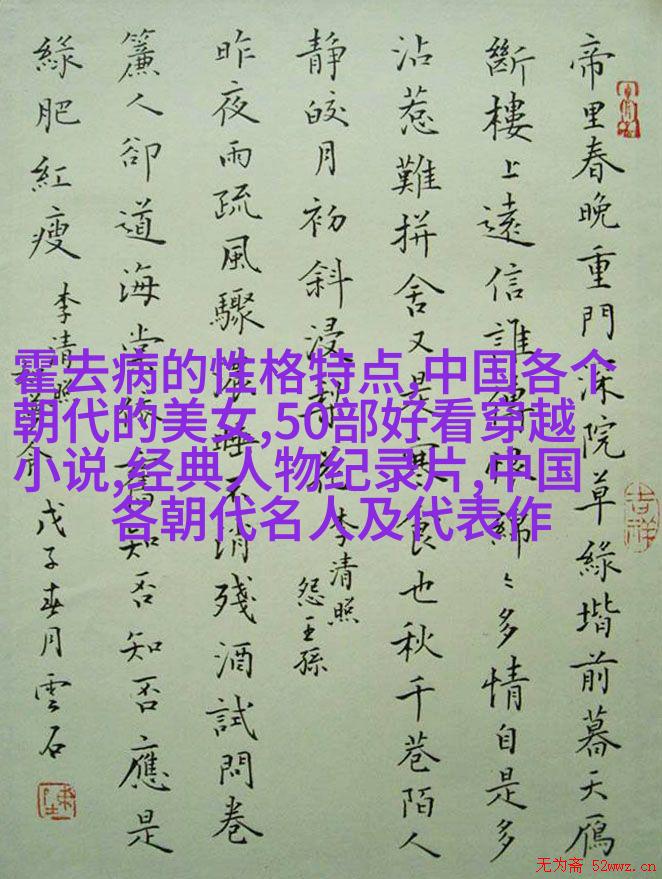 帝里春晚重門深院草綠堦前暮天雁
斷樓上遠信誰傳恨綿〻多情自是多
沾惹難拼舍又是寒食也秋千巷陌人
靜皎月初斜浸梨花 李清照
怨王孫
昨夜雨疏風驟濃睡不消殘酒試問卷
簾人卻道海棠依舊知否知否應是
綠肥紅瘦 李清照
如夢令 戊子春月雲石
霍去病的性格特点,中国各个
朝代的美女,50部好看穿越
小说,经典人物纪录片,中国
各朝代名人及代表作
无为斋 52wwz.cn